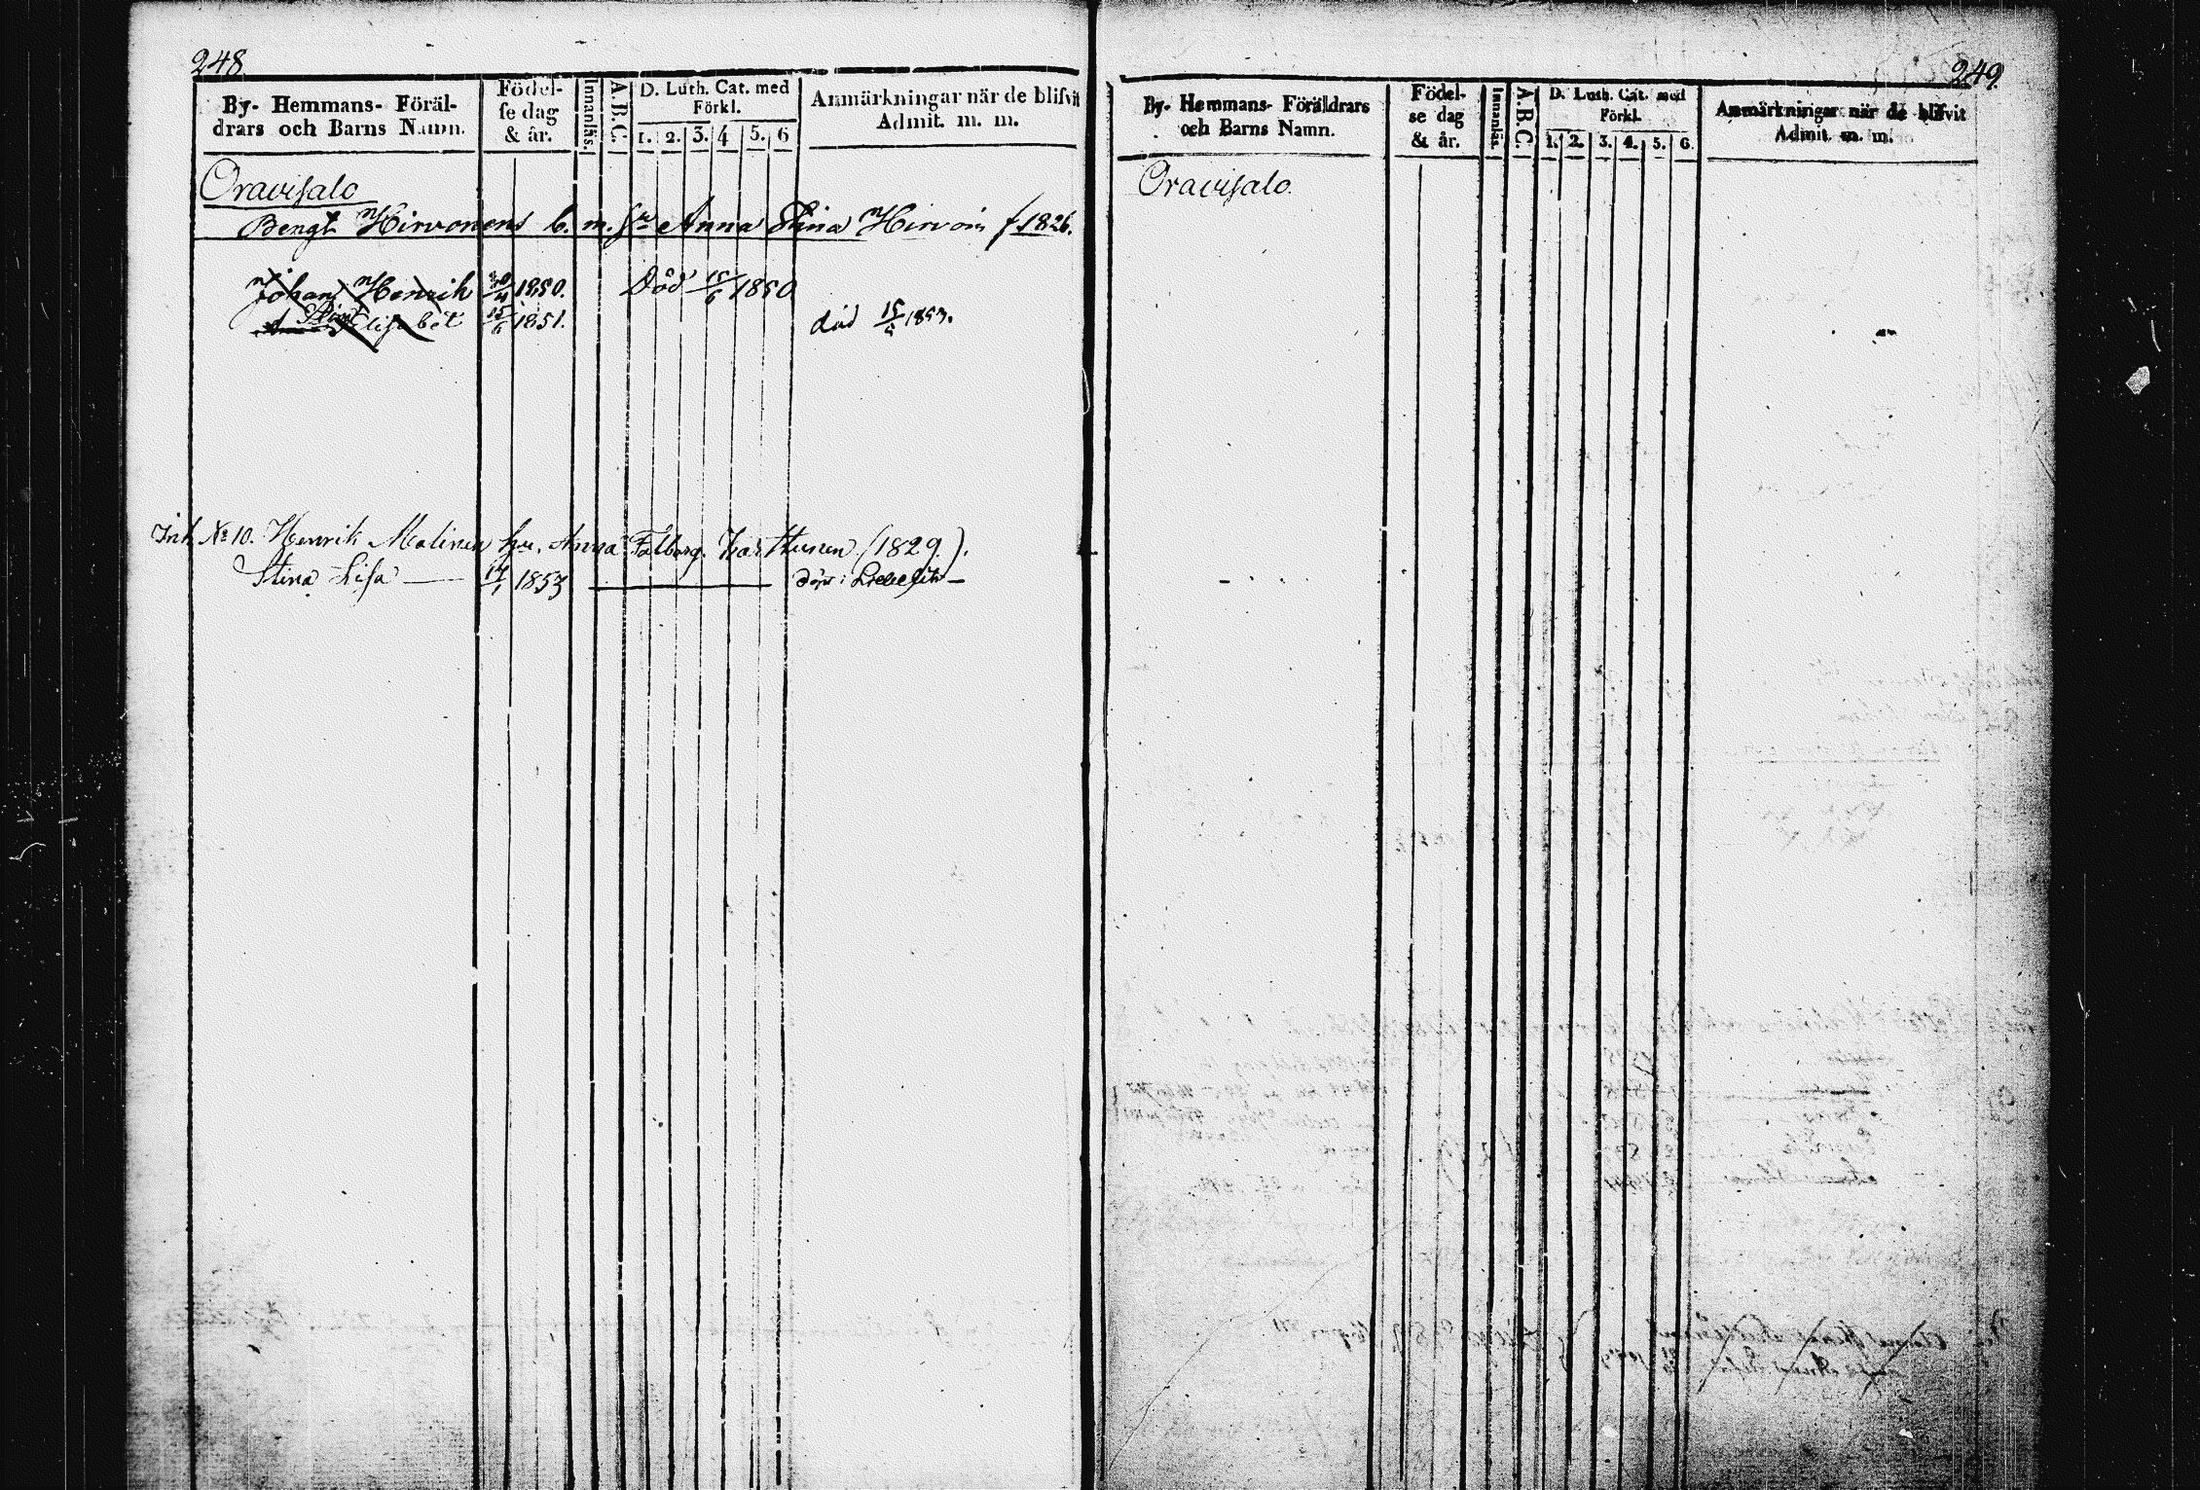 248.
By- Hemmans- Föräl-
drars och Barns Namn.
Födel-
se dag
& år.
Innanläs.
A.B.C.
D. Luth. Cat. med
Förkl.
1. 2. 3. 4 5. 6
Anmärkningar när de blifvit
Admit. m. m.
Oravisalo
Bengt Hirvonens b. m. Anna Stina Hirvoin f. 1826.
Johan Henrik 1850. Död 15/6 1850
Stina Elisabet 15/6 1851. död 1853.
Inh. No 10. Henrik Malinen hu. Anna Falborg (1829).
Stina Lisa — 1853 — Libelits —
249.
By- Hemmans- Föräldrars
och Barns Namn.
Födel-
se dag
& år.
Innanläs.
A.B.C.
D. Luth. Cat. med
Förkl.
1. 2. 3. 4. 5. 6.
Anmärkningar när de blifvit
Admit. m. m.
Oravisalo.